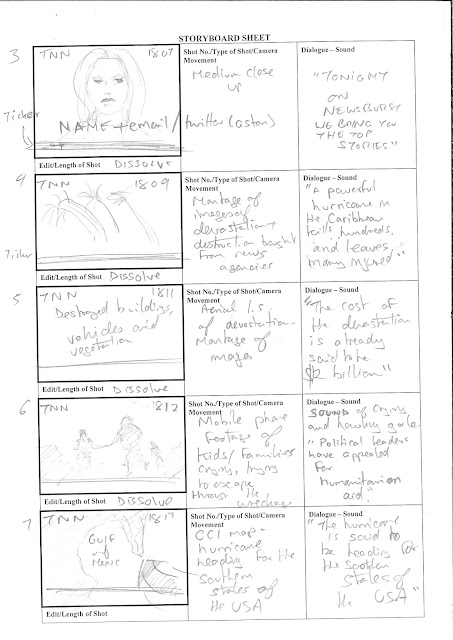 STORYBOARD SHEET
3
TNN 1807
Ticker
NAME + email / twitter (aston)
Edit/Length of Shot DISSOLVE
Shot No./Type of Shot/Camera
Movement
Medium close
up
Dialogue – Sound
"TONIGHT
ON
NEWSBURST
WE BRING YOU
THE TOP
STORIES"
4
TNN 1809
Ticker
Edit/Length of Shot Dissolve
Shot No./Type of Shot/Camera
Movement
Montage of
images of
devastation +
destruction bought
from news
agencies
Dialogue – Sound
"A powerful
hurricane in
the Caribbean
kills hundreds
and leaves
many injured"
5
TNN 1811
Destroyed buildings,
vehicles and
vegetation
Edit/Length of Shot Dissolve
Shot No./Type of Shot/Camera
Movement
Aerial l.s.
of devestation-
Montage of
images
Dialogue – Sound
"The cost of
the devastation
is already
said to be
$2 billion"
6
TNN 1812
Edit/Length of Shot DISSOLVE
Shot No./Type of Shot/Camera
Movement
Mobile phone
footage of
kids/families
crying, trying
to escape
through the
wreckage
Dialogue – Sound
SOUND of crying
and howling gale
"Political leaders
have appealed
for
humanitarian
aid"
7
TNN 1813
GULF
of
Mexico
Edit/Length of Shot
Shot No./Type of Shot/Camera
Movement
CGI map-
hurricane
heading for the
southern
states of
the USA
Dialogue – Sound
"The hurricane
is said to
be heading for
the southern
states of
the USA"